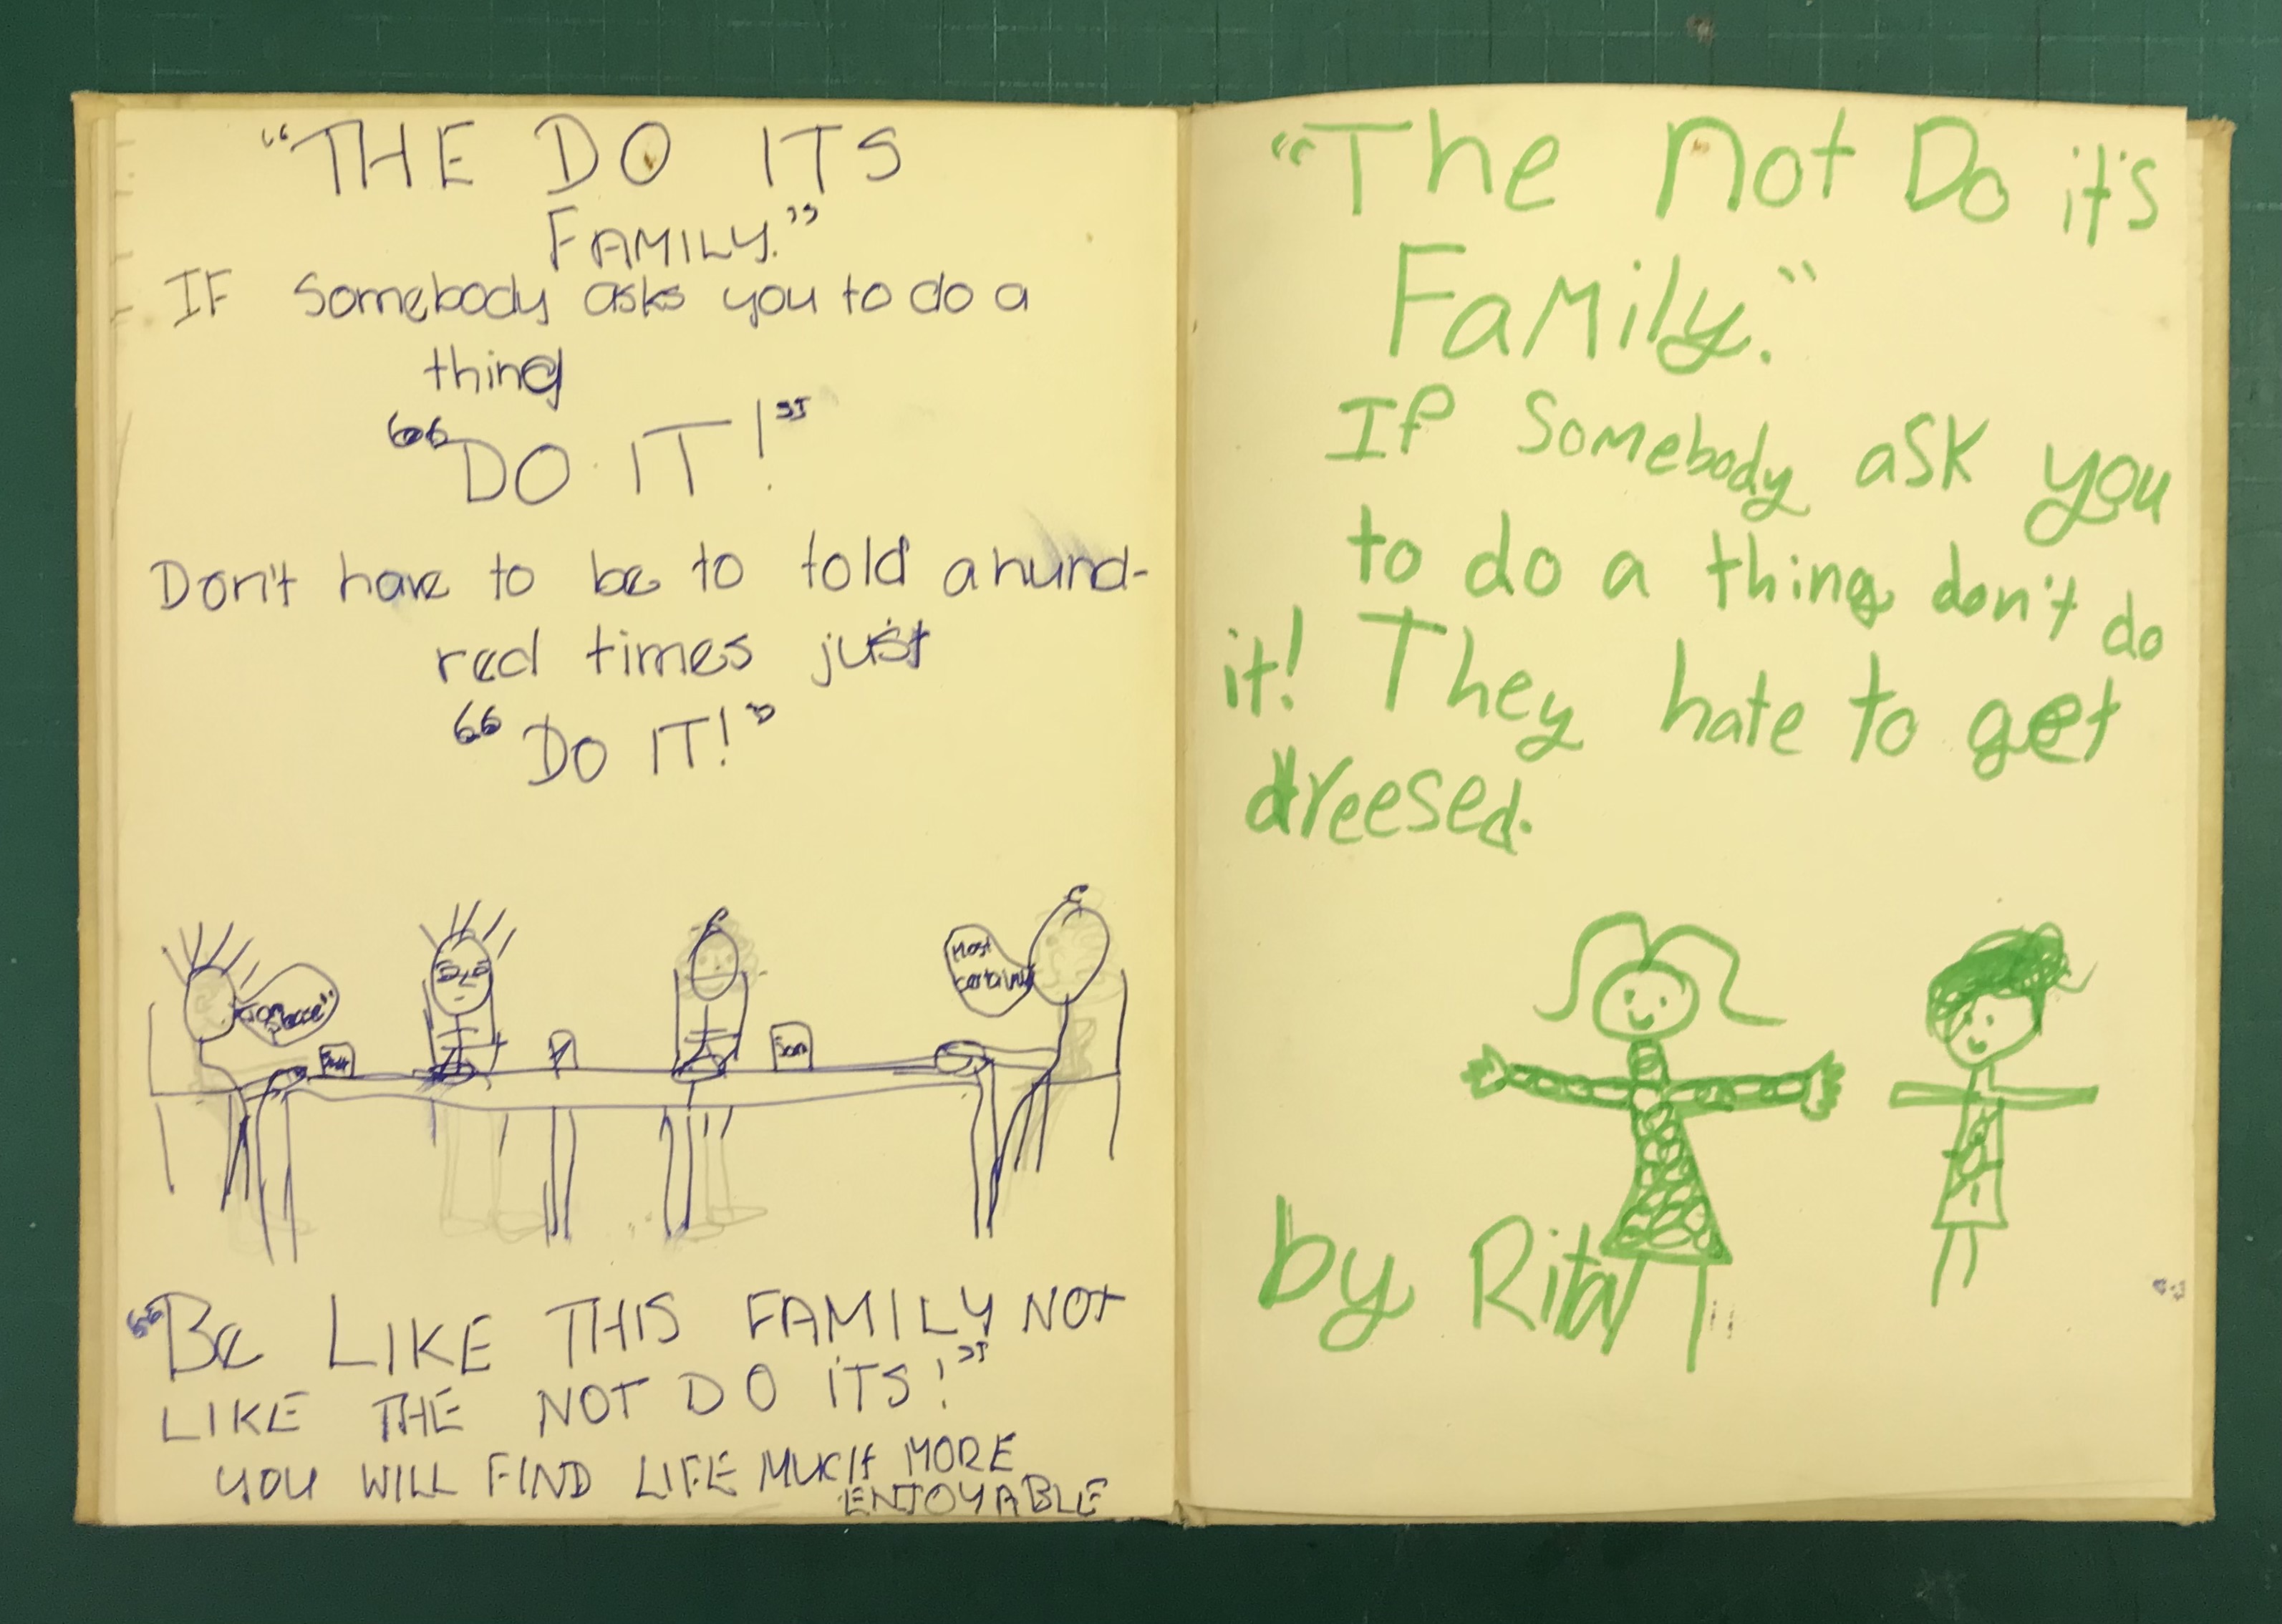 "THE DO ITS
FAMILY."
IF Somebody asks you to do a
thing
"DO IT!"
Don't have to be to told a hund-
red times just
"DO IT!"
Most
certainly
Jam
"BE LIKE THIS FAMILY NOT
LIKE THE NOT DO ITS!"
YOU WILL FIND LIFE MUCH MORE
ENJOYABLE
"The not Do it's
Family."
If Somebody ask you
to do a thing don't do
it! They hate to get
dreesed.
by Rita